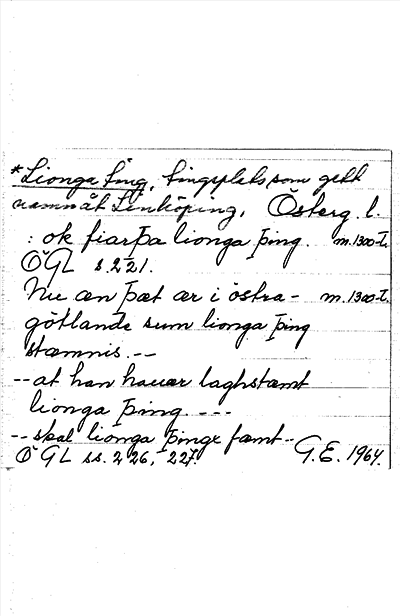 *Lionga ting, tingsplats som gett
namn åt Linköping, Österg. l.
: ok fiarþa lionga þing. m. 1300-t.
ÖGL s. 221.
Nu æn þæt ær i östra- m. 1300-t.
götlande sum lionga þing
stæmnis. --
-- at han hauær laghstæmt
lionga þing. ---
-- skal lionga þinge fæmt--
ÖGL ss. 226, 227. G.E. 1964.